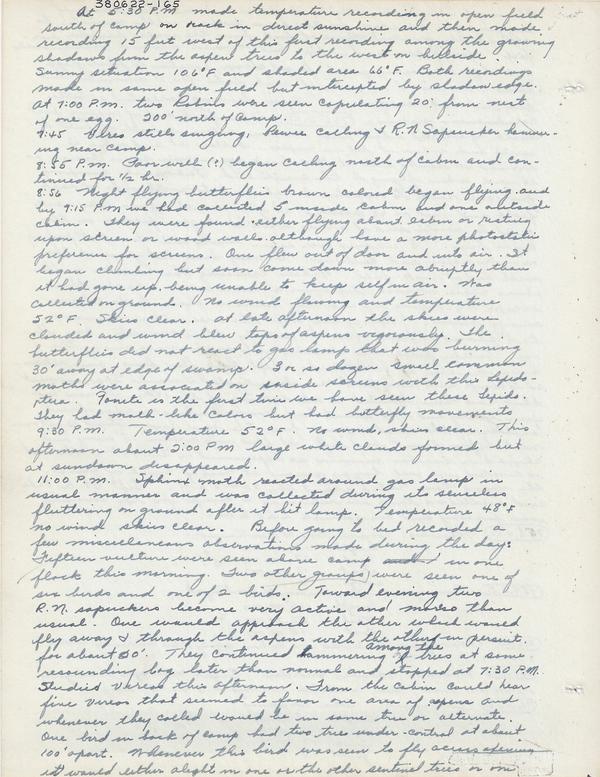 380622-165
At 5:30 P.M. made temperature recording in open field
south of camp on rock in direct sunshine and then made
recording 15 feet west of this first recording among the growing
shadows from the aspen trees to the west on hillside.
Sunny situation 106°F and shaded area 66°F. Both recordings
made in same open field but intercepted by shadow edge.
At 7:00 P.M. two Robins were seen copulating 20' from nest
of one egg. 200' north of camp.
7:45 Vireo still singing, Pewee calling & R.N Sapsucker hammer-
ing near camp.
8:55 P.M. Poor will (?) began calling north of cabin and con-
tinued for ½ hr.
8:56 Night flying butterflies brown colored began flying and
by 9:15 P.M we had collected 5 inside cabin and one outside
cabin. They were found either flying about cabin or resting
upon screen or wood walls although have a more photostatic
preference for screens. One flew out of door and into air. It
began climbing but soon came down more abruptly than
it had gone up, being unable to keep self in air. Was
collected on ground. No wind and temperature
52°F. Skies clear. At late afternoon the skies were
clouded and wind blew tops of aspens vigorously. The
butterflies did not react to gas lamp that was burning
30' away at edge of swamp. 3 or so dozen small common
moths were associated on inside screens with this Lepido-
ptera. Tonite is the first time we have seen these Lepido.
They had moth-like colors but had butterfly movements
9:30 P.M. Temperature 52°F. No wind, skies clear. This
afternoon about 2:00 P.M large white clouds formed but
at sundown disappeared.
11:00 P.M. Sphinx moth reacted around gas lamp in
usual manner and was collected during its senseless
fluttering on ground after it hit lamp. Temperature 48°F
no wind skies clear. Before going to bed recorded a
few miscellaneous observations made during the day:
Fifteen vulture were seen above camp in one
flock this morning. Two other groups were seen one of
six birds and one of 2 birds. Toward evening two
R.N. sapsuckers become very active and noises than
usual. One would approach the other which would
fly away & through the aspens with the other in pursuit
for about 50'. They continued hammering among the trees at some
resounding log later than normal and stopped at 7:30 P.M.
Studied Vireos this afternoon. From the cabin could hear
five vireos that seemed to favor one area of aspens and
whenever they called would be in some tree or alternate.
One bird in back of camp had two tree under control at about
100' apart. Whenever this bird was seen to fly across
it would either alight in one or the other sentinel trees or on